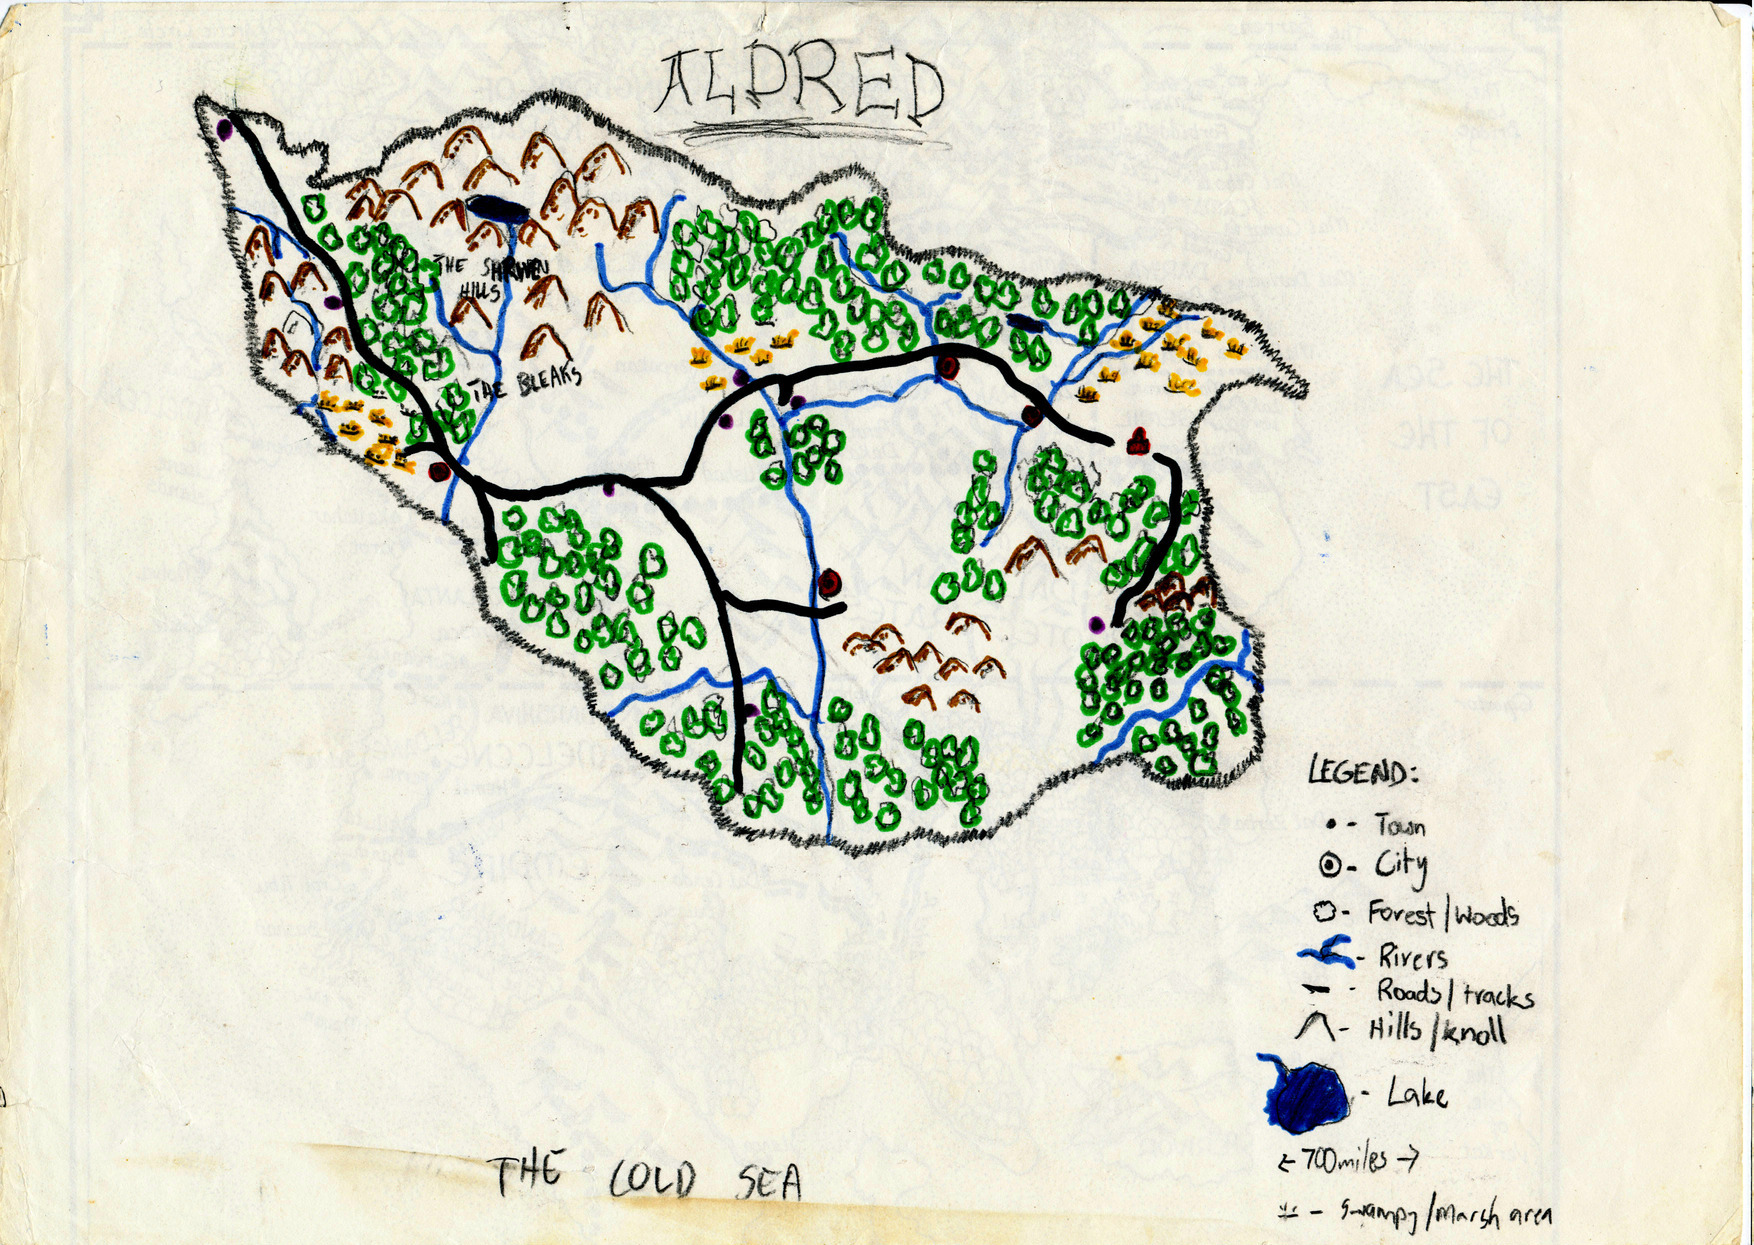 ALDRED
THE
HILLS
THE BLEAKS
LEGEND:
• - Town
- City
- Forest/Woods
- Rivers
- Roads/tracks
- Hills/knoll
- Lake
← 700miles →
- Swampy/Marsh area
THE COLD SEA